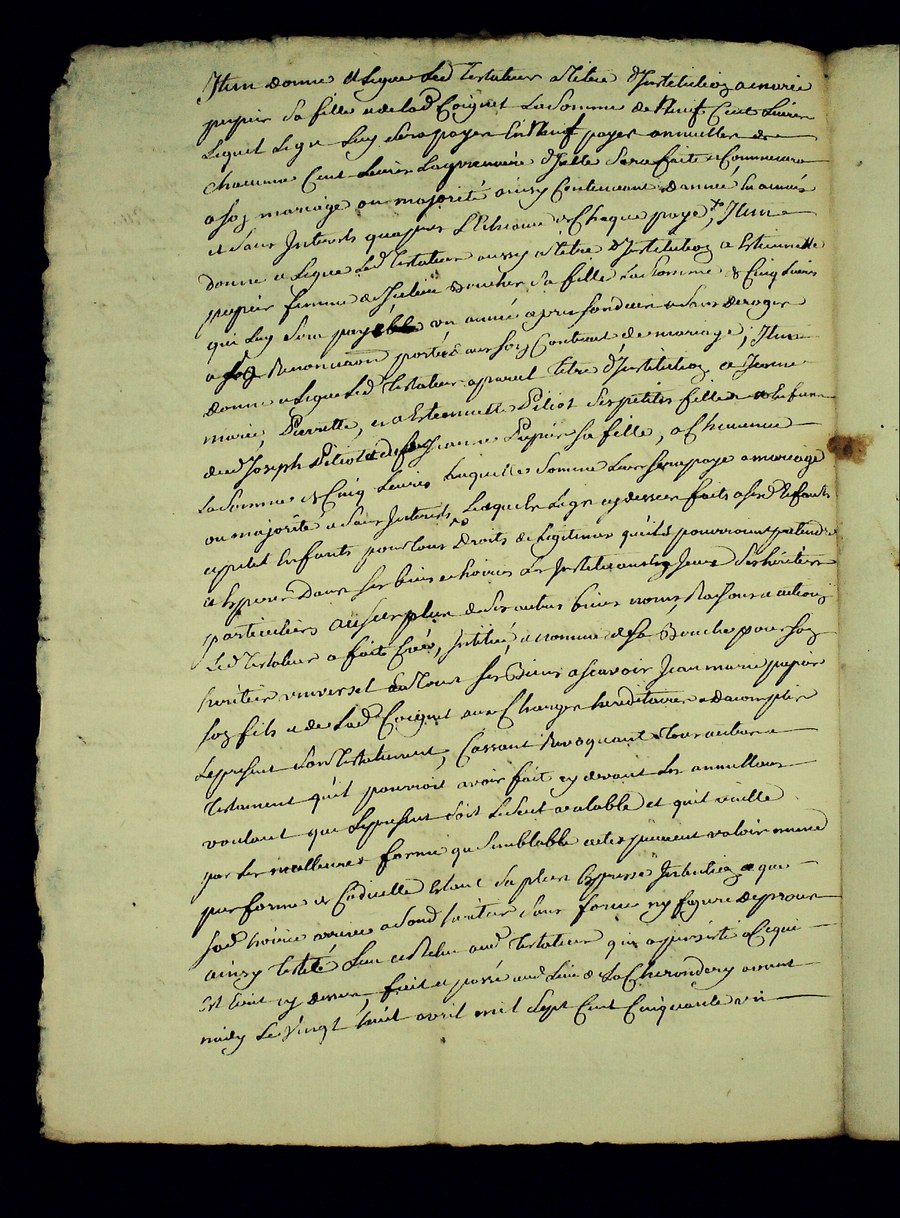 Item donne et Legue Led Testateur a titre d'Institution a marie
pupier sa fille et de lad Coignet La somme de Neuf Cent Livres
Lequel Legat Luy sera payer En Neuf payes annuelles de
chacunne Cent Livres La premiere d'jcelle sera faite et Commencera
a son mariage ou majorité ainsy Continuant d'année En année
et sans Interets qu'apres L'Echeance de Chaque paye; Item
donne et Legue Led Testateur aussy a titre d'Institution a Estiennette
pupier femme de Julien Boucher sa fille La somme de Cinq Livres
qui Luy sera payable un année apres son deces et sans deroger
a son Renonciation portée au son Contract de mariage; Item
donne et Legue Led Testateur a pareil titre d'Institution a Jeanne
marie, Pierrette, et a Estiennette Piliot ses petites filles et Enfans
dud Joseph Piliot et de feu Jeanne Pupier sa fille, a Chacunne
La somme de Cinq Livres Laquelle somme Leur sera paye a mariage
ou majorité et sans Interets, Lesquels Legat cy dessus faits a sesd Enfants
et petit Enfants pour tous Droits de Legitimes qu'ils pourroient pretendre
et Esperer Dans ses biens et hoirie Les Instituant En Jceux ses héritiers
particuliers au surplus de ses autres biens noms, Raisons et actions
Led Testateur a fait Créé, Institué, et nommé de sa Bouche pour son
héritier universel En tous ses Biens a scavoir Jean marie pupier
son fils et de Lad Coignet aux Charges héréditaires et d'acomplir
Le present son Testament, Cassant Revoquant Tous autres
Testament qu'il pourroit avoir fait cy devant Les annullant
voulant que Le present soit Le seul valable et qu'il vaille
par Les meilleures forme que semblable actes peuvent valoir meme
par forme de Codicille Estant sa plus Expresse Intention et que
sad hoirie arrive a sond héritier sans forme ny figure de proces
ainsy testé Leu et Relu aud Testateur qui a persisté a Ce qui
Est Ecrit cy dessus, fait et passé aud Lieu de La Cherondery avant
midy Le vingt huit avril mil sept Cent Cinquante un